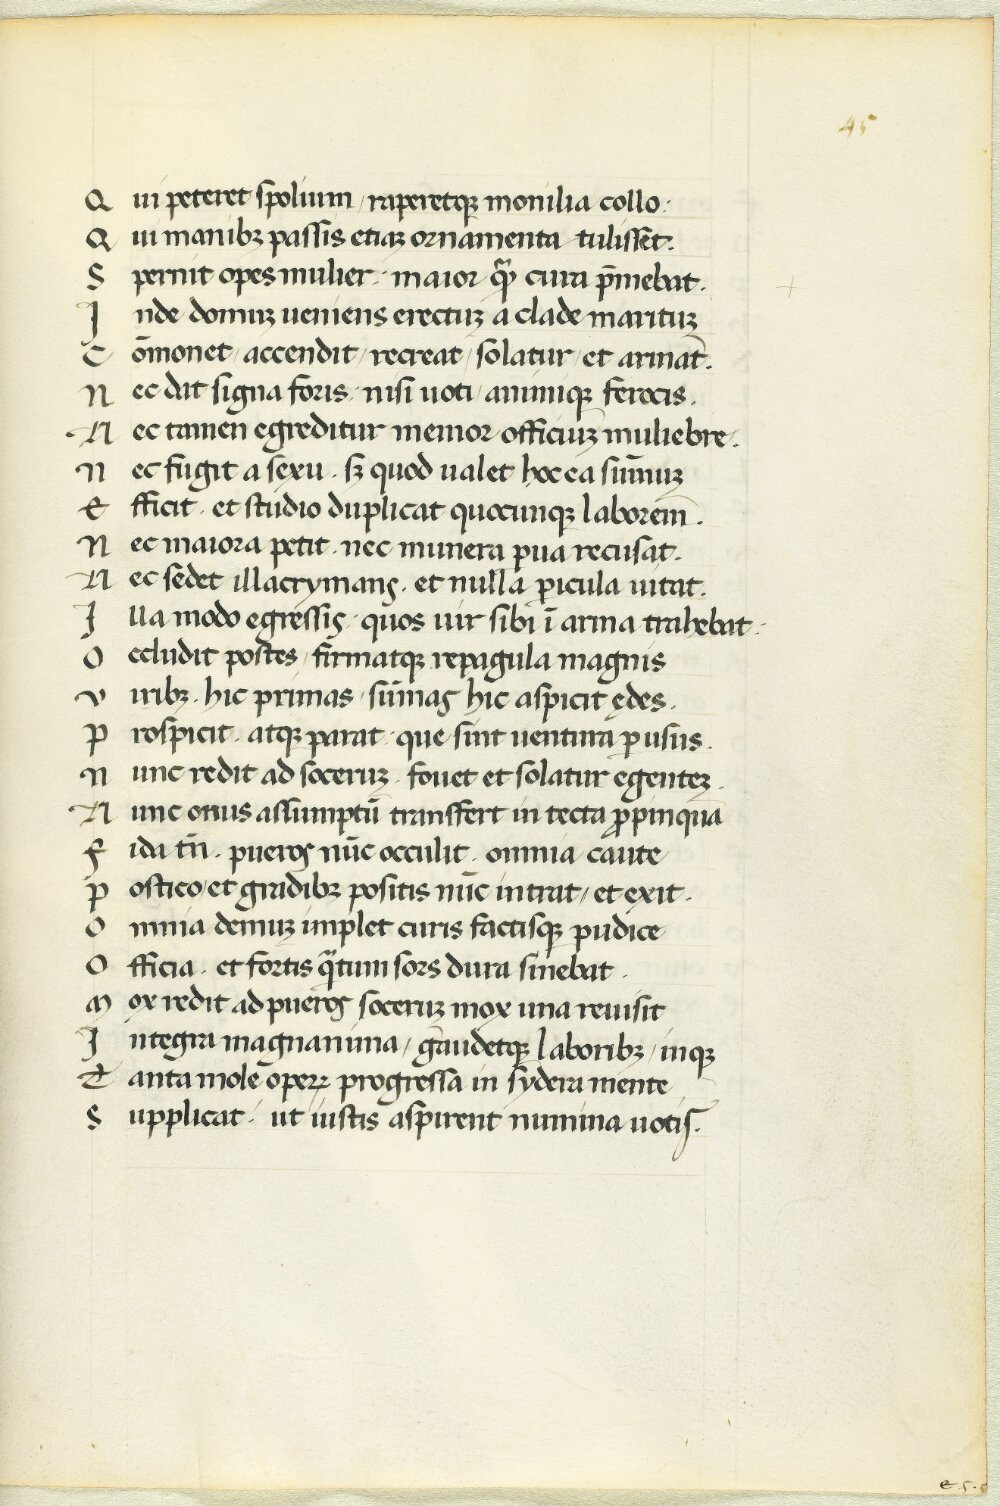 45
Qui peteret spolium / raperetqꝫ monilia collo:
Qui manibꝫ passis etiaꝫ ornamenta tulisset̄.
Spernit opes mulier · maior qᷓꝫ cura p̄mebat.
Inde domuꝫ ueniens erectuꝫ a clade marituꝫ
Cōmonet / accendit / recreat / solatur / et armat̄.
Nec dat signa foris · nisi uoti / animiqꝫ ferocis.
Nec tamen egreditur memor officiuꝫ muliebre.
Nec fugit a sexu · sꝫ quod ualet hoc ea sum̄uꝫ
Efficit · et studio duplicat quocunqꝫ laborem̄.
Nec maiora petit · nec munera pua recusat.
Nec sedet illacrymans · et nulla ꝑicula uitat.
Illa modo egressis · quos uir sibi ī arma trahebat:
Occludit postes / firmatqꝫ repagula magnis
Viribꝫ · hic primas / sum̄as hic aspicit ędes.
Prospicit · atqꝫ parat · que sint uentura ꝑ usus.
Nunc redit ad soceruꝫ · fouet et solatur egenteꝫ.
Nunc onus assumptū transfert in tecta ꝓpinqua
Fida tn̄ · pueros nūc occulit · omnia caute
Postico / et gradibꝫ positis nūc intrat / et exit.
Omnia demuꝫ implet curis factisqꝫ pudice
Officia · et fortis qᷓtum sors dura sinebat.
Mox redit ad pueros soceruꝫ mox una reuisit
Integra magnanima / gaudetqꝫ laboribꝫ / inqꝫ
Tanta mole operꝝ progressa in sydera mente
Supplicat · ut iustis aspirent numina uotis.
e · 5 · 5